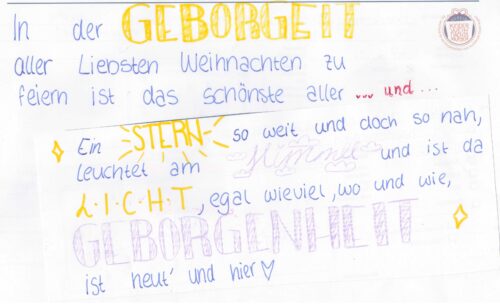 In der GEBORGEIT
aller Liebsten Weihnachten zu
feiern ist das schönste aller ... und ...
Ein STERN so weit und doch so nah,
leuchtet am Himmel und ist da
L·I·C·H·T, egal wieviel, wo und wie,
GEBORGENHEIT
ist heut' und hier